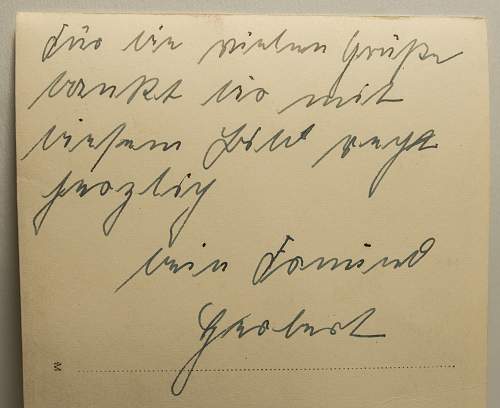 Für die vielen Grüße
dankt dir mit
diesem Bild recht
herzlich
dein Freund
Herbert
M